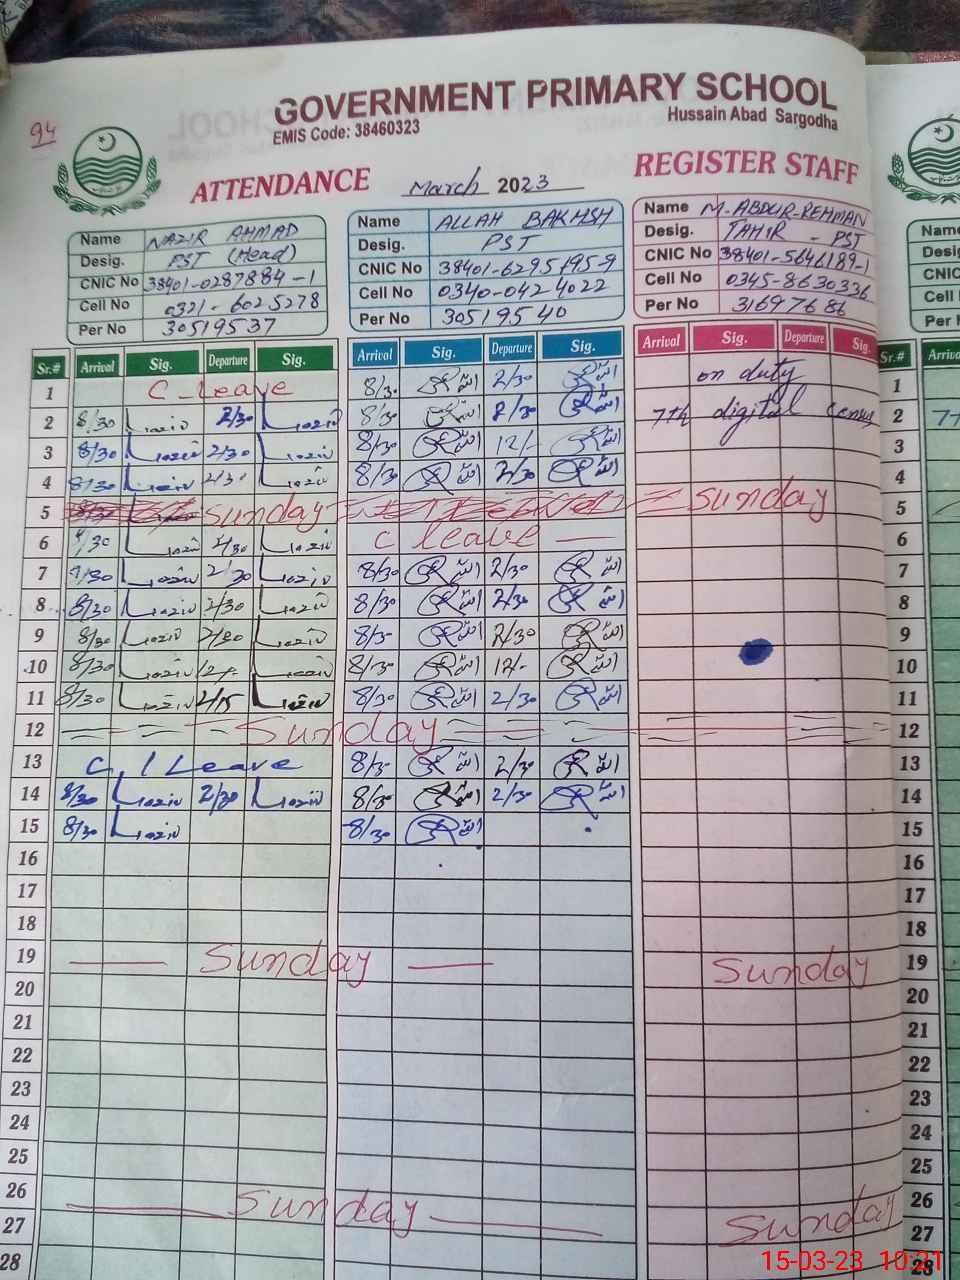 94
GOVERNMENT PRIMARY SCHOOL
EMIS Code: 38460323
Hussain Abad Sargodha
ATTENDANCE March 2023 REGISTER STAFF
Name NAZIR AHMAD
Desig. PST (Head)
CNIC No 38401-0287884-1
Cell No 0321-6025278
Per No 30519537
Name ALLAH BAKHSH
Desig. PST
CNIC No 38401-6295195-9
Cell No 0340-0424022
Per No 30519540
Name M-ABDUR-REHMAN
Desig. TAHIR - PST
CNIC No 38401-5646189-1
Cell No 0345-8630336
Per No 31697686
Name
Desig.
CNIC
Cell
Per
Sr.# Arrival Sig. Departure Sig. Arrival Sig. Departure Sig. Arrival Sig. Departure Sig. Sr.#
1 C-leave 8/30 2/30 on duty 1
2 8/30 2/30 8/30 2/30 7th digital census 2 7t
3 8/30 2/30 8/30 12/- 3
4 8/30 2/30 8/30 2/30 4
5 Sunday Sunday 5
6 8/30 2/30 C leave 6
7 8/30 2/30 8/30 2/30 7
8 8/30 2/30 8/30 2/30 8
9 8/30 8/30 2/30 9
10 8/30 8/30 12/- 10
11 8/30 2/15 8/30 2/30 11
12 Sunday 12
13 C, l Leave 8/30 2/30 13
14 8/30 2/30 8/30 2/30 14
15 8/30 8/30 15
16 16
17 17
18 18
19 Sunday Sunday 19
20 20
21 21
22 22
23 23
24 24
25 25
26 Sunday Sunday 26
27 27
28 28
15-03-23 10:21